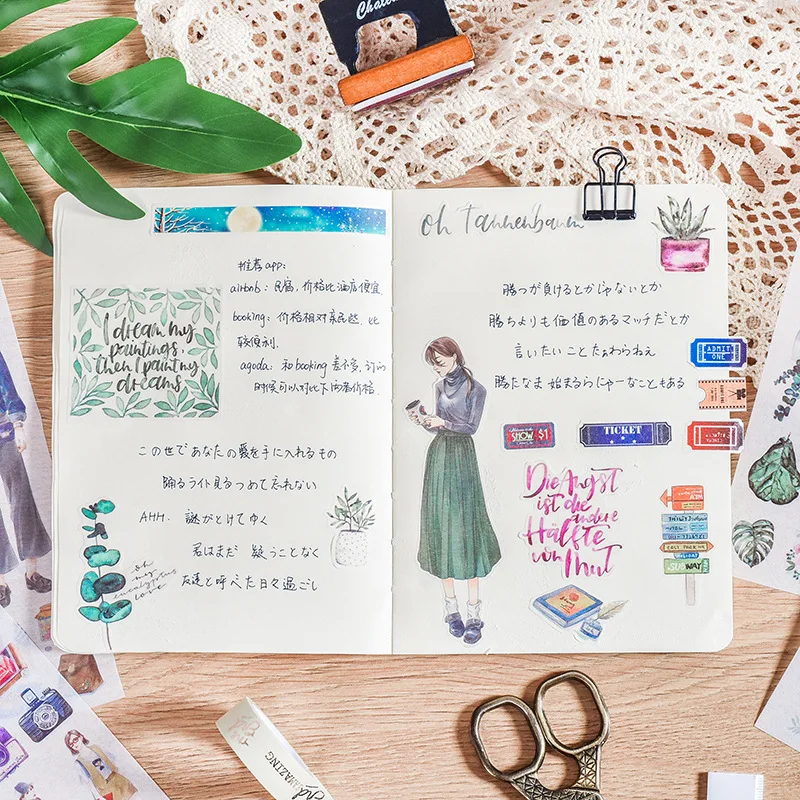 推荐app:
airbnb: 民宿, 价格比酒店便宜.
booking: 价格相对亲民些, 比
较便利.
agoda: 和booking差不多, 订的
时候可以对比下两者价格.
I dream my
paintings,
then I paint my
dreams
この世であなたの愛を手に入れるもの
踊るライト見るつめて忘れない
AHH. 謎がとけてゆく
君はまだ 疑うことなく
友達と呼べた日々過ごし
oh
my
eucalyptus
love
oh Tannenbaum
勝つが負けるとかじゃないとか
勝ちよりも価値のあるマッチだとか
言いたいことたぁわらねぇ
勝たなま 始まるらにゃーなこともある
ADMIT
ONE
SHOW $1
TICKET
Die Angst
ist die
andere
Hälfte
von Mut
SUBWAY
AMAZING